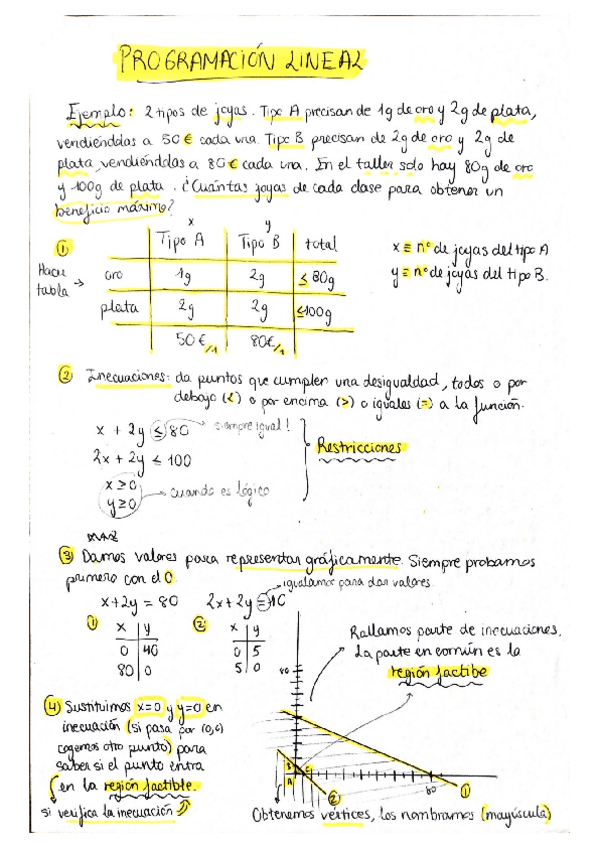 PROGRAMACIÓN LINEAL
Ejemplo: 2 tipos de joyas. Tipo A precisan de 1g de oro y 2g de plata,
vendiéndolas a 50€ cada una. Tipo B precisan de 2g de oro y 2g de
plata, vendiéndolas a 80€ cada una. En el taller solo hay 80g de oro
y 100g de plata. ¿Cuántas joyas de cada clase para obtener un
beneficio máximo?
①
Hacer tabla →
x y
Tipo A Tipo B total
oro 1g 2g ≤ 80g
plata 2g 2g ≤100g
50€/1 80€/1
x ≡ nº de joyas del tipo A
y ≡ nº de joyas del tipo B.
② Inecuaciones: da puntos que cumplen una desigualdad, todos o por
debajo (<) o por encima (>) o iguales (=) a la función.
x + 2y ≤ 80 siempre igual!
2x + 2y ≤ 100
x ≥ 0
y ≥ 0
cuando es lógico
Restricciones
③ Damos valores para representar gráficamente. Siempre probamos
primero con el 0.
igualamos para dar valores
x+2y = 80 2x + 2y = 10
① x y
0 40
80 0
② x y
0 5
5 0
Rallamos parte de inecuaciones.
La parte en común es la
región factible
④ Sustituimos x=0 y y=0 en
inecuación (si pasa por (0,0)
cogemos otro punto) para
saber si el punto entra
en la región factible.
si verifica la inecuación
80
B
C
A
80
①
②
Obtenemos vértices, los nombramos (mayúscula)